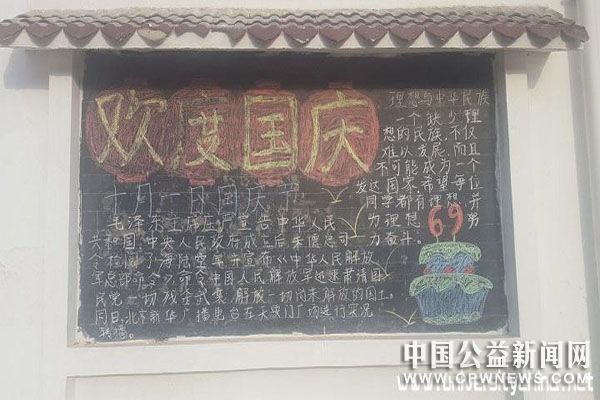 欢度国庆
十月一日国庆节
毛泽东主席庄严宣告中华人民
共和国中央人民政府成立后朱德总司
令检阅了海陆空军并宣布《中华人民解放
军总部命令》命令中国人民解放军迅速肃清国
民党一切残余武装解放一切尚未解放的国土。
同日,北京新华广播电台在天安门广场进行实况
转播。
理想与中华民族
一个缺少理
想的民族,不仅
难以发展,而且
不可能成为一个
发达国家,希望每位
同学都有理想,并
为理想而努
力奋斗。
69
中国公益新闻网
WWW.CPWNEWS.COM